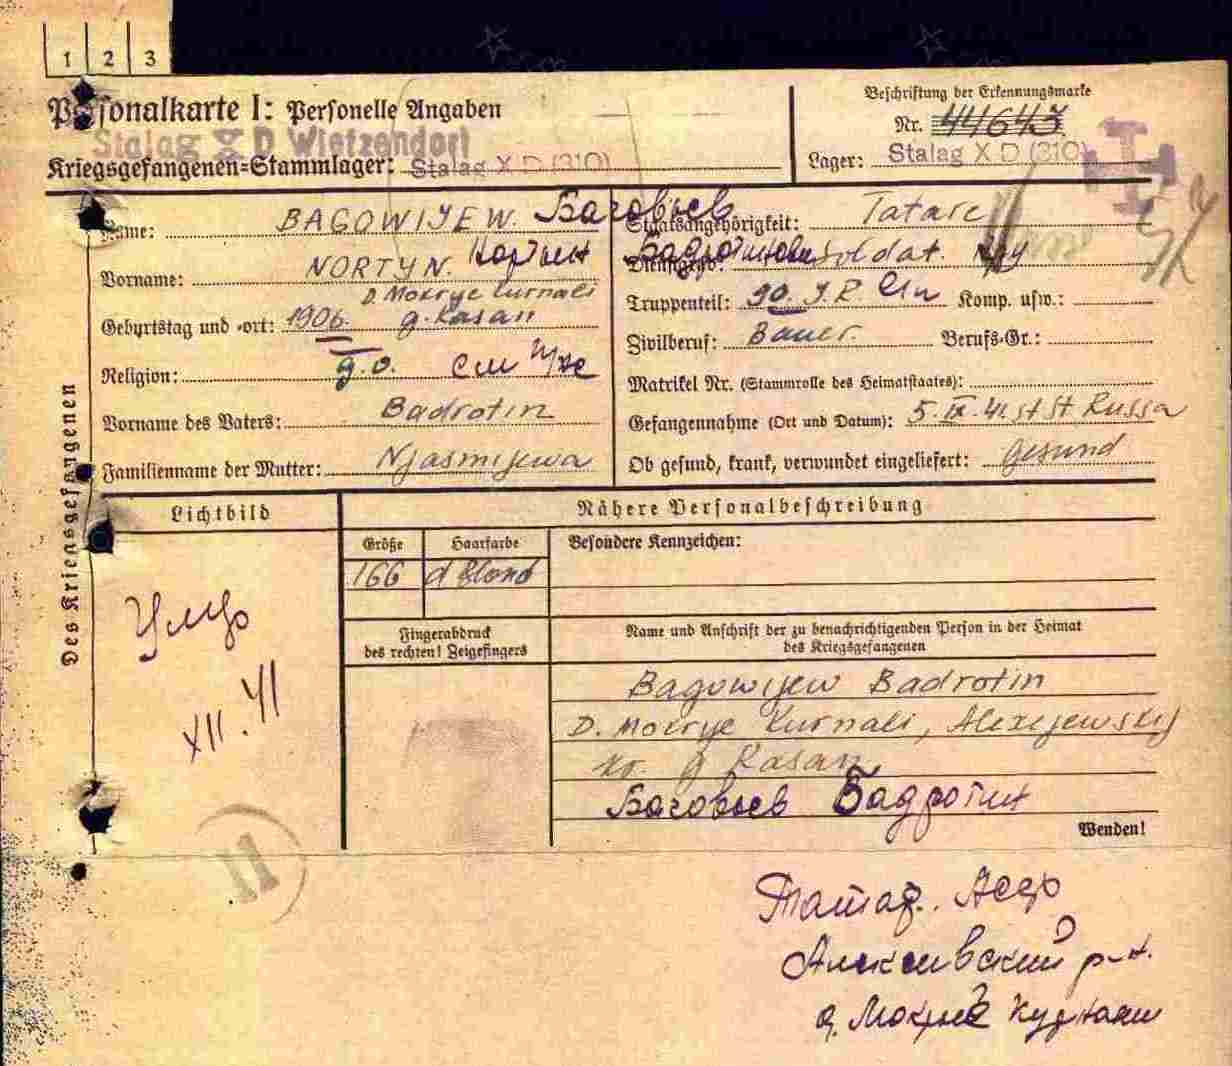 1 2 3
Personalkarte I: Personelle Angaben
Beschriftung der Erkennungsmarke
Nr. 44643
Stalag X D Wietzendorf
Kriegsgefangenen=Stammlager: Stalag X D (310)
Lager: Stalag X D (310)
Des Kriegsgefangenen
Name: BAGOWIJEW. Баговьев
Vorname: NORTYN.
D. Mokrye Kurnali
Geburtstag und -ort: 1906. g. Kasan
Religion:
Vorname des Vaters: Badrotin
Familienname der Mutter: Njasmijewa
Staatsangehörigkeit: Tatare
Dienstgrad: Soldat.
Truppenteil: 90. J.R. Komp. usw.:
Zivilberuf: Bauer. Berufs-Gr.:
Matrikel Nr. (Stammrolle des Heimatstaates):
Gefangennahme (Ort und Datum): 5.IX.41 St Russa
Ob gesund, krank, verwundet eingeliefert: Gesund
Lichtbild
Nähere Personalbeschreibung
Größe Haarfarbe Besondere Kennzeichen:
166 d Blond
Fingerabdruck
des rechten! Zeigefingers
Name und Anschrift der zu benachrichtigenden Person in der Heimat
des Kriegsgefangenen
Bagowijew Badrotin
D. Mokrye Kurnali, Alexejewskij
g Kasan
Баговьев Бадротин
Wenden!
Умер
XII. 41
11
Татар. Асср
Алексевский р-н.
д. Мокрые Курнали